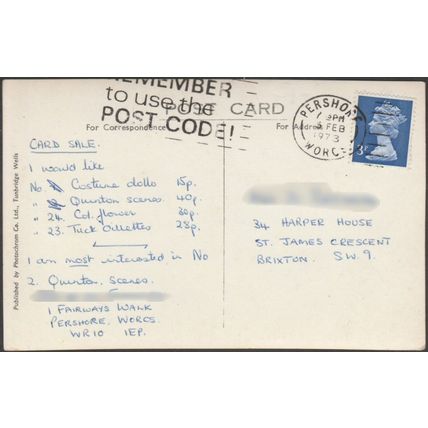 REMEMBER
to use the
POST CODE!
POST CARD
For Correspondence
For Address
PERSHORE
PM
FEB
1973
WORCS
CARD SALE.
I would like
No Costume dolls 15p.
" Quinton scenes. 40p.
" 24. Col. flower 30p.
" 23. Tuck Oilettes 23p.
I am most interested in No
2. Quinton Scenes.
1 FAIRWAYS WALK
PERSHORE, WORCS.
WR10 1EP.
34 HARPER HOUSE
ST. JAMES CRESCENT
BRIXTON. S.W.9.
Published by Photochrom Co. Ltd., Tunbridge Wells